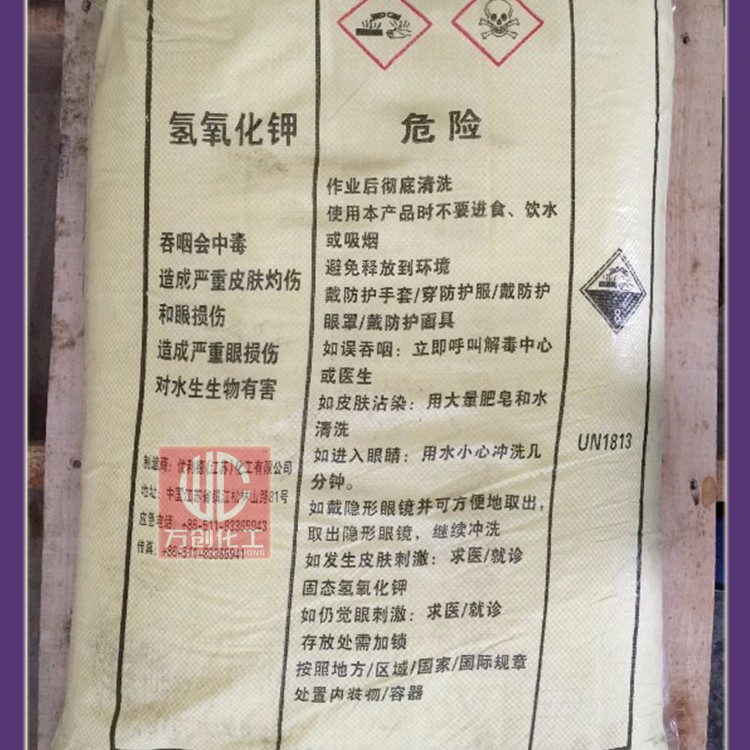 氢氧化钾
吞咽会中毒
造成严重皮肤灼伤
和眼损伤
造成严重眼损伤
对水生生物有害
制造商：优利德(江苏)化工有限公司
地址：中国江苏省镇江松林山路81号
应急电话：+86-511-83365943
传真：+86-511-83365941
万创化工
危险
作业后彻底清洗
使用本产品时不要进食、饮水
或吸烟
避免释放到环境
戴防护手套/穿防护服/戴防护
眼罩/戴防护面具
如误吞咽：立即呼叫解毒中心
或医生
如皮肤沾染：用大量肥皂和水
清洗
如进入眼睛：用水小心冲洗几
分钟。
如戴隐形眼镜并可方便地取出，
取出隐形眼镜，继续冲洗
如发生皮肤刺激：求医/就诊
固态氢氧化钾
如仍觉眼刺激：求医/就诊
存放处需加锁
按照地方/区域/国家/国际规章
处置内装物/容器
8
UN1813